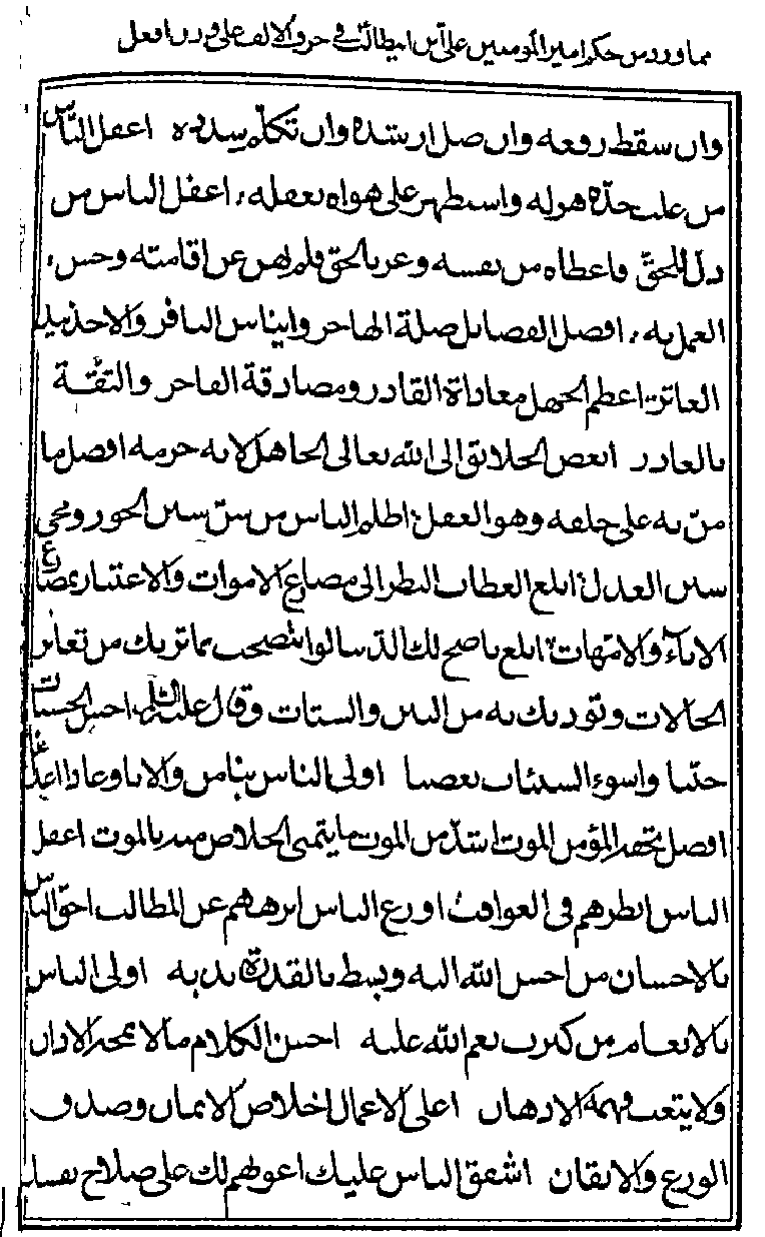 مما ورد من حكم امير المؤمنين علي بن ابيطالب في حرف الالف على وزن افعل
وان سقط رفعه وان ضل ارشده وان تكلم سدده اعقل الناس
من غلب جدّه هزله واستظهر على هواه بعقله، اعقل الناس من
ذلّ للحقّ فاعطاه من نفسه وعز بالحق فلم يهن عن اقامته وحسن
العمل به، افضل الفضايل صلة الهاجر وايناس النافر والاخذ بيد
العاثر اعظم الجهل معاداة القادر ومصادقة الفاجر والثقة
بالغادر ابغض الخلائق الى الله تعالى الجاهل لانه حرمه افضل ما
منّ به على خلقه وهو العقل اظلم الناس من سنّ سنن الجور ومحى
سنن العدل ابلغ العظات النظر الى مصارع الاموات والاعتبار بمصارع
الاباء والامهات ابلغ ناصح لك الدنيا لو انتصحت بما تريك من تغاير
الحالات وتؤذنك به من البين والشتات وقال عليه السلام احسن الحسنات
حبّنا واسوء السيئات بغضنا اولى الناس بنا من والانا وعادا اعدانا
افضل تحفة المؤمن الموت اشدّ من الموت ما يتمنى الخلاص منه بالموت اعقل
الناس انظرهم في العواقب اورع الناس انزههم عن المطالب احقّ الناس
بالاحسان من احسن الله اليه وبسط بالقدرة يديه اولى الناس
بالانعام من كثرت نعم الله عليه احسن الكلام ما لا تمجه الاذان
ولا يتعب فهمه الاذهان اعلى الاعمال اخلاص الايمان وصدق
الورع والايقان اشفق الناس عليك اعونهم لك على صلاح نفسك